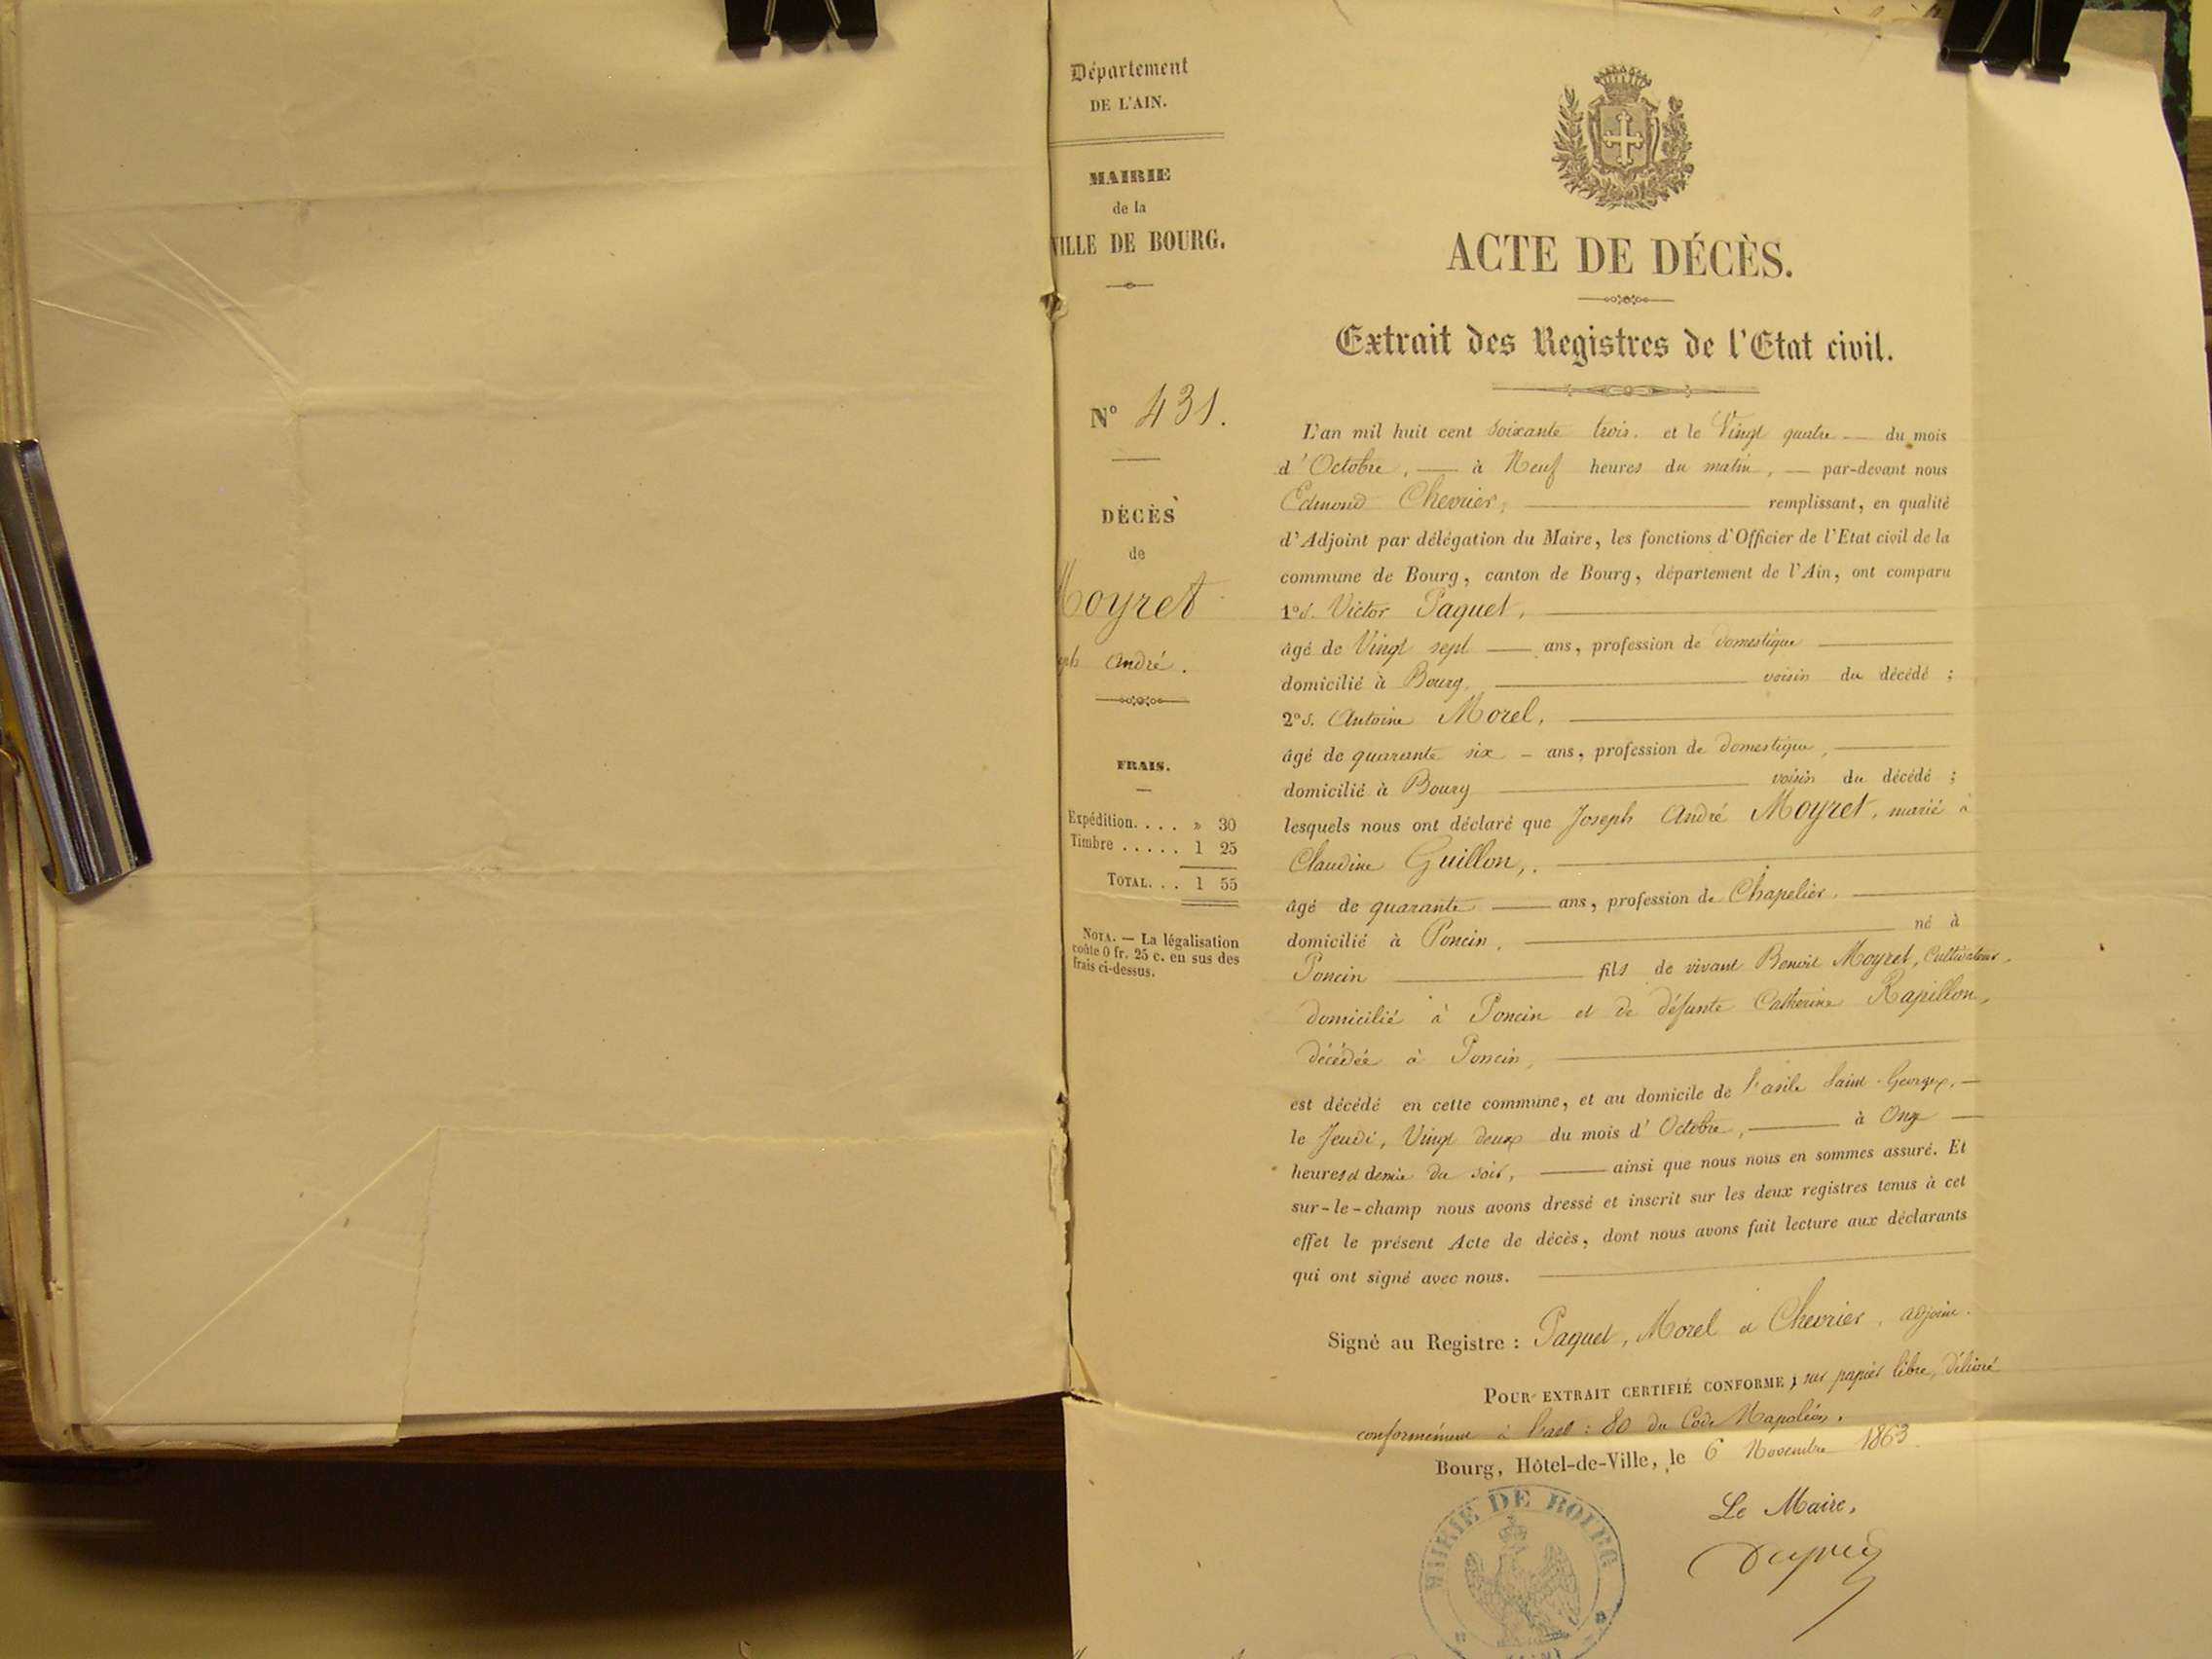 Département
DE L'AIN.
MAIRIE
de la
VILLE DE BOURG.
N° 431.
DÉCÈS
de
Moyret
eph André.
FRAIS.
Expédition. . . . » 30
Timbre . . . . . 1 25
TOTAL. . . 1 55
NOTA. — La légalisation
coûte 0 fr. 25 c. en sus des
frais ci-dessus.
ACTE DE DÉCÈS.
Extrait des Registres de l'Etat civil.
L'an mil huit cent soixante trois. et le Vingt quatre — du mois
d'Octobre, — à Neuf heures du matin, — par-devant nous
Edmond Chevrier, — remplissant, en qualité
d'Adjoint par délégation du Maire, les fonctions d'Officier de l'Etat civil de la
commune de Bourg, canton de Bourg, département de l'Ain, ont comparu
1° s. Victor Paquet, —
âgé de Vingt sept — ans, profession de domestique —
domicilié à Bourg, — voisin du décédé ;
2° s. Antoine Morel, —
âgé de quarante six — ans, profession de domestique, —
domicilié à Bourg — voisin du décédé ;
lesquels nous ont déclaré que Joseph André Moyret, marié à
Claudine Guillon, —
âgé de quarante — ans, profession de Chapelier, —
domicilié à Poncin, — né à
Poncin — fils de vivant Benoit Moyret, Cultivateur,
domicilié à Poncin et de défunte Catherine Rapillon,
décédée à Poncin, —
est décédé en cette commune, et au domicile de l'asile Saint-Georges, —
le Jeudi, Vingt deux du mois d'Octobre, — à Onze —
heures et demie du soir, — ainsi que nous nous en sommes assuré. Et
sur-le-champ nous avons dressé et inscrit sur les deux registres tenus à cet
effet le présent Acte de décès, dont nous avons fait lecture aux déclarants
qui ont signé avec nous. —
Signé au Registre : Paquet, Morel et Chevrier, adjoint.
POUR EXTRAIT CERTIFIÉ CONFORME ; sur papier libre, délivré
conformément à l'art : 80 du Code Napoléon.
Bourg, Hôtel-de-Ville, le 6 Novembre 1863
Le Maire,
MAIRIE DE BOURG